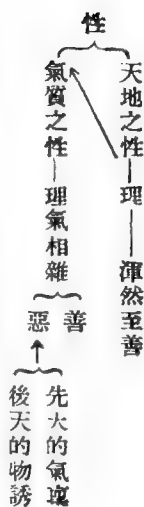 性
天地之性—理——渾然至善
氣質之性—理氣相雜
善
惡
先天的氣
後天的物誘